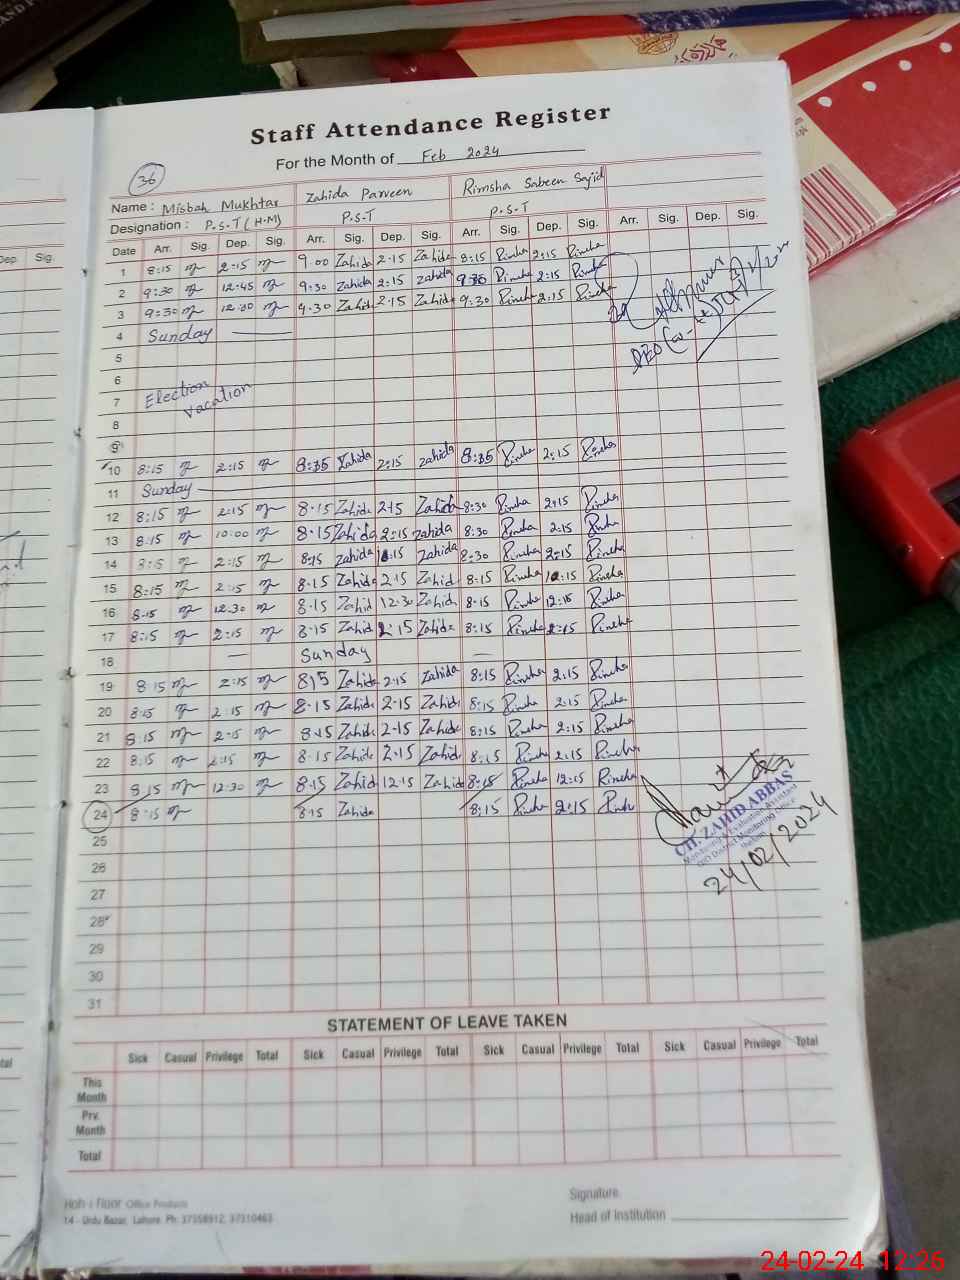 Staff Attendance Register
For the Month of Feb 2024
36
Name : Misbah Mukhtar Zahida Parveen Rimsha Sabeen Sajid
Designation : P.S.T (H.M) P.S.T P.S.T
Dep. Sig. Date Arr. Sig. Dep. Sig. Arr. Sig. Dep. Sig. Arr. Sig. Dep. Sig. Arr. Sig. Dep. Sig.
1 8:15 2:15 9.00 Zahida 2.15 Zahida 8:15 Rimsha 2:15 Rimsha
2 9:30 12:45 9:30 Zahida 2:15 Zahida 9:30 Rimsha 2:15 Rimsha
3 9:30 12:30 9.30 Zahida 2.15 Zahida 9.30 Rimsha 2:15 Rimsha
4 Sunday
5
6
7 Election Vacation
8
9
10 8:15 2:15 8:35 Zahida 2:15 Zahida 8:35 Rimsha 2:15 Rimsha
11 Sunday
12 8:15 2:15 8.15 Zahida 2.15 Zahida 8:30 Rimsha 2:15 Rimsha
13 8:15 10:00 8.15 Zahida 2:15 Zahida 8:30 Rimsha 2.15 Rimsha
14 8:15 2:15 8:15 Zahida Zahida 8:30 Rimsha 2:15 Rimsha
15 8:15 2:15 8.15 Zahida 2.15 Zahid 8:15 Rimsha Rimsha
16 8.15 12.30 8.15 Zahid 12.30 Zahid 8.15 Rimsha 12:15 Rimsha
17 8:15 2:15 8.15 Zahid 2:15 Zahida 8:15 Rimsha 2:15 Rimsha
18 Sunday
19 8.15 2:15 8:15 Zahida 2.15 Zahida 8:15 Rimsha 2.15 Rimsha
20 8.15 2:15 8.15 Zahida 2.15 Zahida 8:15 Rimsha 2.15 Rimsha
21 8.15 2.15 8.15 Zahida 2.15 Zahida 8:15 Rimsha 2:15 Rimsha
22 8.15 2:15 8.15 Zahida 2.15 Zahid 8:15 Rimsha 2.15 Rimsha
23 8.15 12:30 8.15 Zahid 12.15 Zahida 8:15 Rimsha 12:15 Rimsha
24 8.15 8.15 Zahida 8:15 Rimsha 2:15 Rimsha
CH. ZAHID ABBAS
Monitoring & Evaluation Assistant
District Monitoring Office
24/02/2024
25
26
27
28
29
30
31
STATEMENT OF LEAVE TAKEN
Sick Casual Privilege Total Sick Casual Privilege Total Sick Casual Privilege Total Sick Casual Privilege Total
This Month
Prv. Month
Total
Office Products
14 - Urdu Bazar, Lahore. Ph: 37358912, 37310463
Signature
Head of Institution
24-02-24 12:26